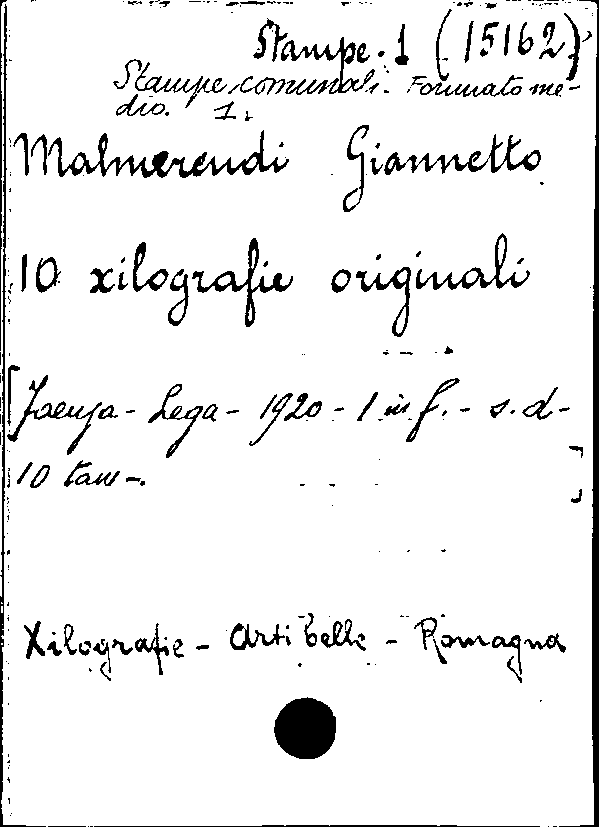 Stampe. 1 (15162)
Stampe comunali. Formato me-
dio. 1.
Malmerendi Giannetto
10 xilografie originali
[Faenza - Lega - 1920 - 1 in f. - s. d -
10 tav -. ]
Xilografie - Arti belle - Romagna